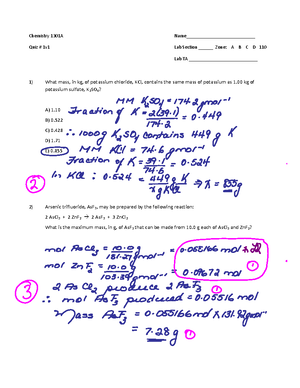 Chemistry 1301A Name
Quiz # 1s1 Lab Section ______ Zone: A B C D 110
Lab TA
1) What mass, in kg, of potassium chloride, KCl, contains the same mass of potassium as 1.00 kg of
potassium sulfate, K₂SO₄?
MM K₂SO₄ = 174.2 gmol⁻¹
A) 1.10
Fraction of K = 2(39.1) / 174.2 = 0.449
B) 0.522
C) 0.428
∴ 1000g K₂SO₄ contains 449 g K
D) 1.71
MM KCl = 74.6 gmol⁻¹
E) 0.855
Fraction of K = 39.1 / 74.6 = 0.524
In KCl : 0.524 = 449 g K / x g KCl ⇒ x = 855g
2
2) Arsenic trifluoride, AsF₃, may be prepared by the following reaction:
2 AsCl₃ + 3 ZnF₂ → 2 AsF₃ + 3 ZnCl₂
What is the maximum mass, in g, of AsF₃ that can be made from 10.0 g each of AsCl₃ and ZnF₂?
mol AsCl₃ = 10.0 g / 181.27 gmol⁻¹ = 0.055166 mol
mol ZnF₂ = 10.0 g / 103.39 gmol⁻¹ = 0.09672 mol
1
3
2 AsCl₃ produce 2 AsF₃ 1
∴ mol AsF₃ produced = 0.05516 mol
Mass AsF₃ = 0.055166 mol x 131.92 gmol⁻¹
= 7.28 g 1